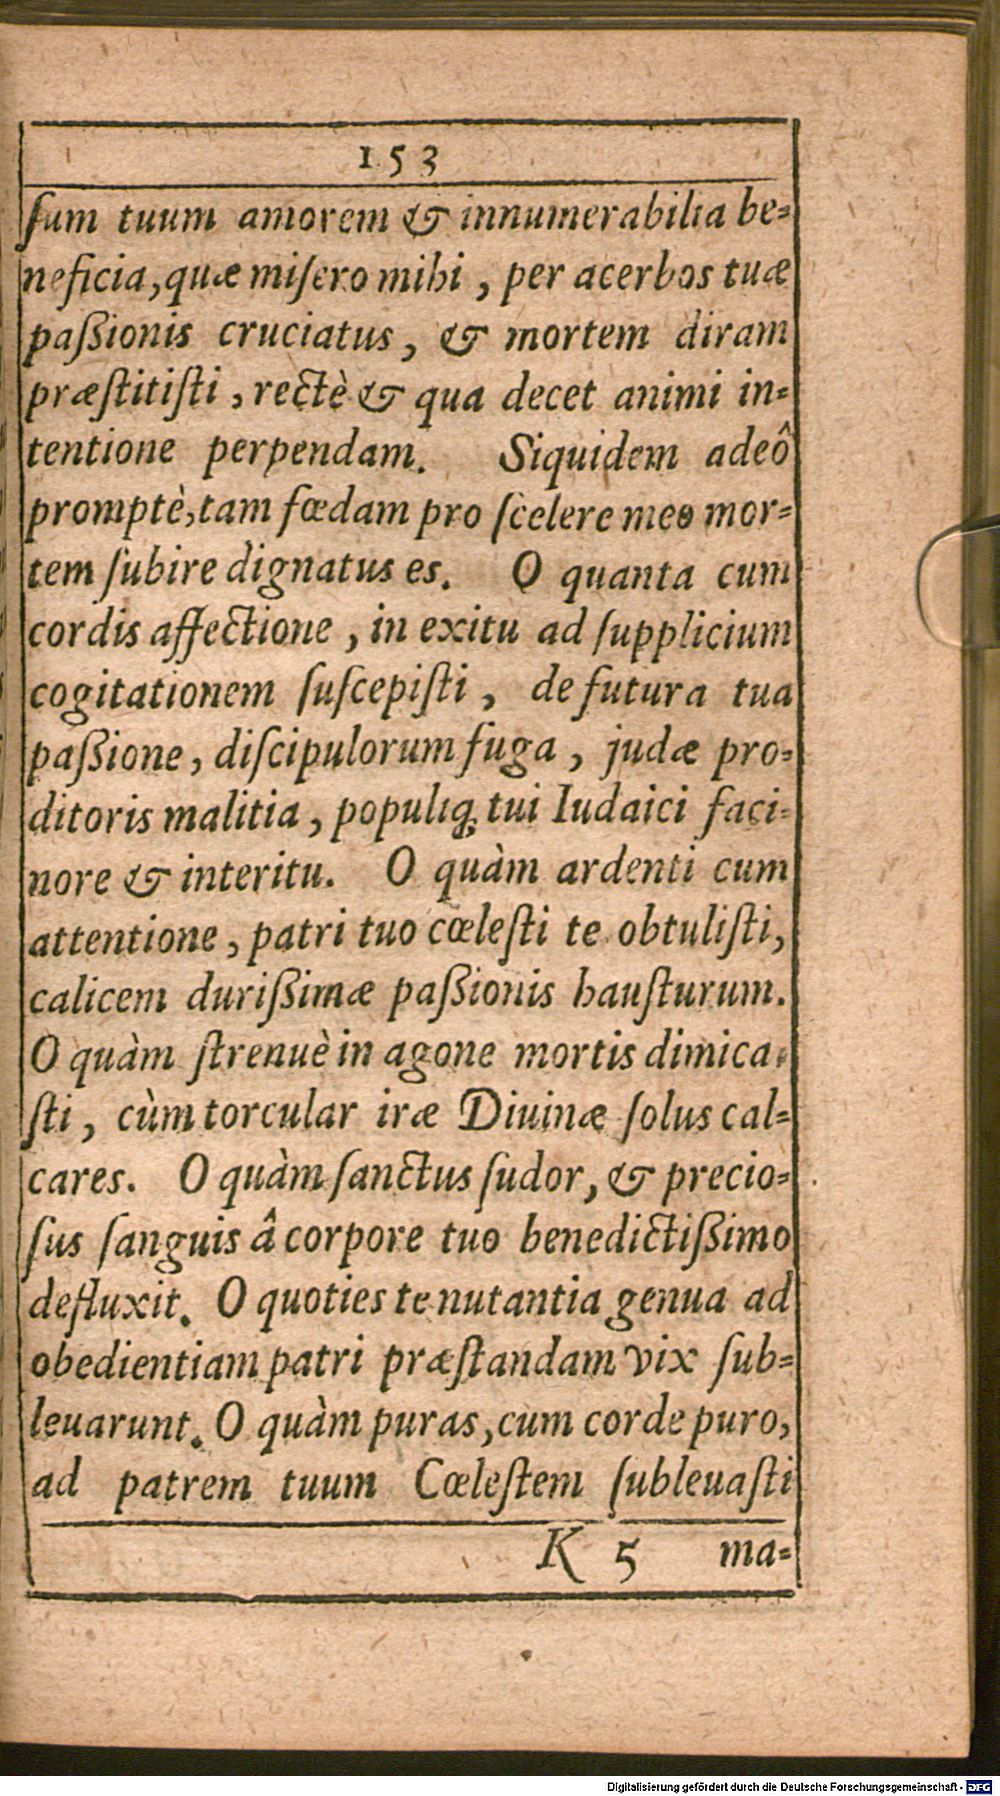 153
ſum tuum amorem & innumerabilia be=
neficia, quæ miſero mihi, per acerbos tuæ
paßionis cruciatus, & mortem diram
præſtitiſti, rectè & qua decet animi in=
tentione perpendam. Siquidem adeô
promptè, tam fœdam pro ſcelere meo mor=
tem ſubire dignatus es. O quanta cum
cordis affectione, in exitu ad ſupplicium
cogitationem ſuſcepiſti, de futura tua
paßione, diſcipulorum fuga, judæ pro=
ditoris malitia, populiq; tui Iudaici faci=
nore & interitu. O quàm ardenti cum
attentione, patri tuo cœleſti te obtuliſti,
calicem durißimæ paßionis hauſturum.
O quàm ſtrenuè in agone mortis dimica=
ſti, cùm torcular iræ Diuinæ ſolus cal=
cares. O quàm ſanctus ſudor, & precio=
ſus ſanguis â corpore tuo benedictißimo
defluxit. O quoties te nutantia genua ad
obedientiam patri præſtandam vix ſub=
leuarunt. O quàm puras, cum corde puro,
ad patrem tuum Cœleſtem ſubleuaſti
K 5 ma=
Digitalisierung gefördert durch die Deutsche Forschungsgemeinschaft - DFG